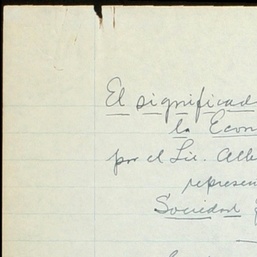 El significad
la Econ
por el Lic. Albe
represen
Sociedad